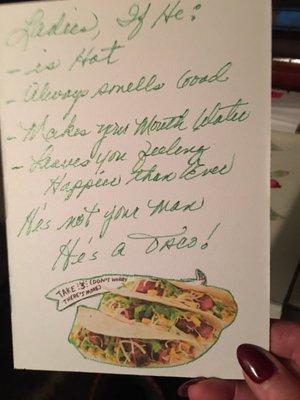 Ladies, If He:
- is Hot
- Always smells Good
- Makes your Mouth Water
- Leaves you Feeling
Happier than Ever
He's not your man
He's a Taco!
TAKE :3: (DON'T WORRY
THERE'S MORE)